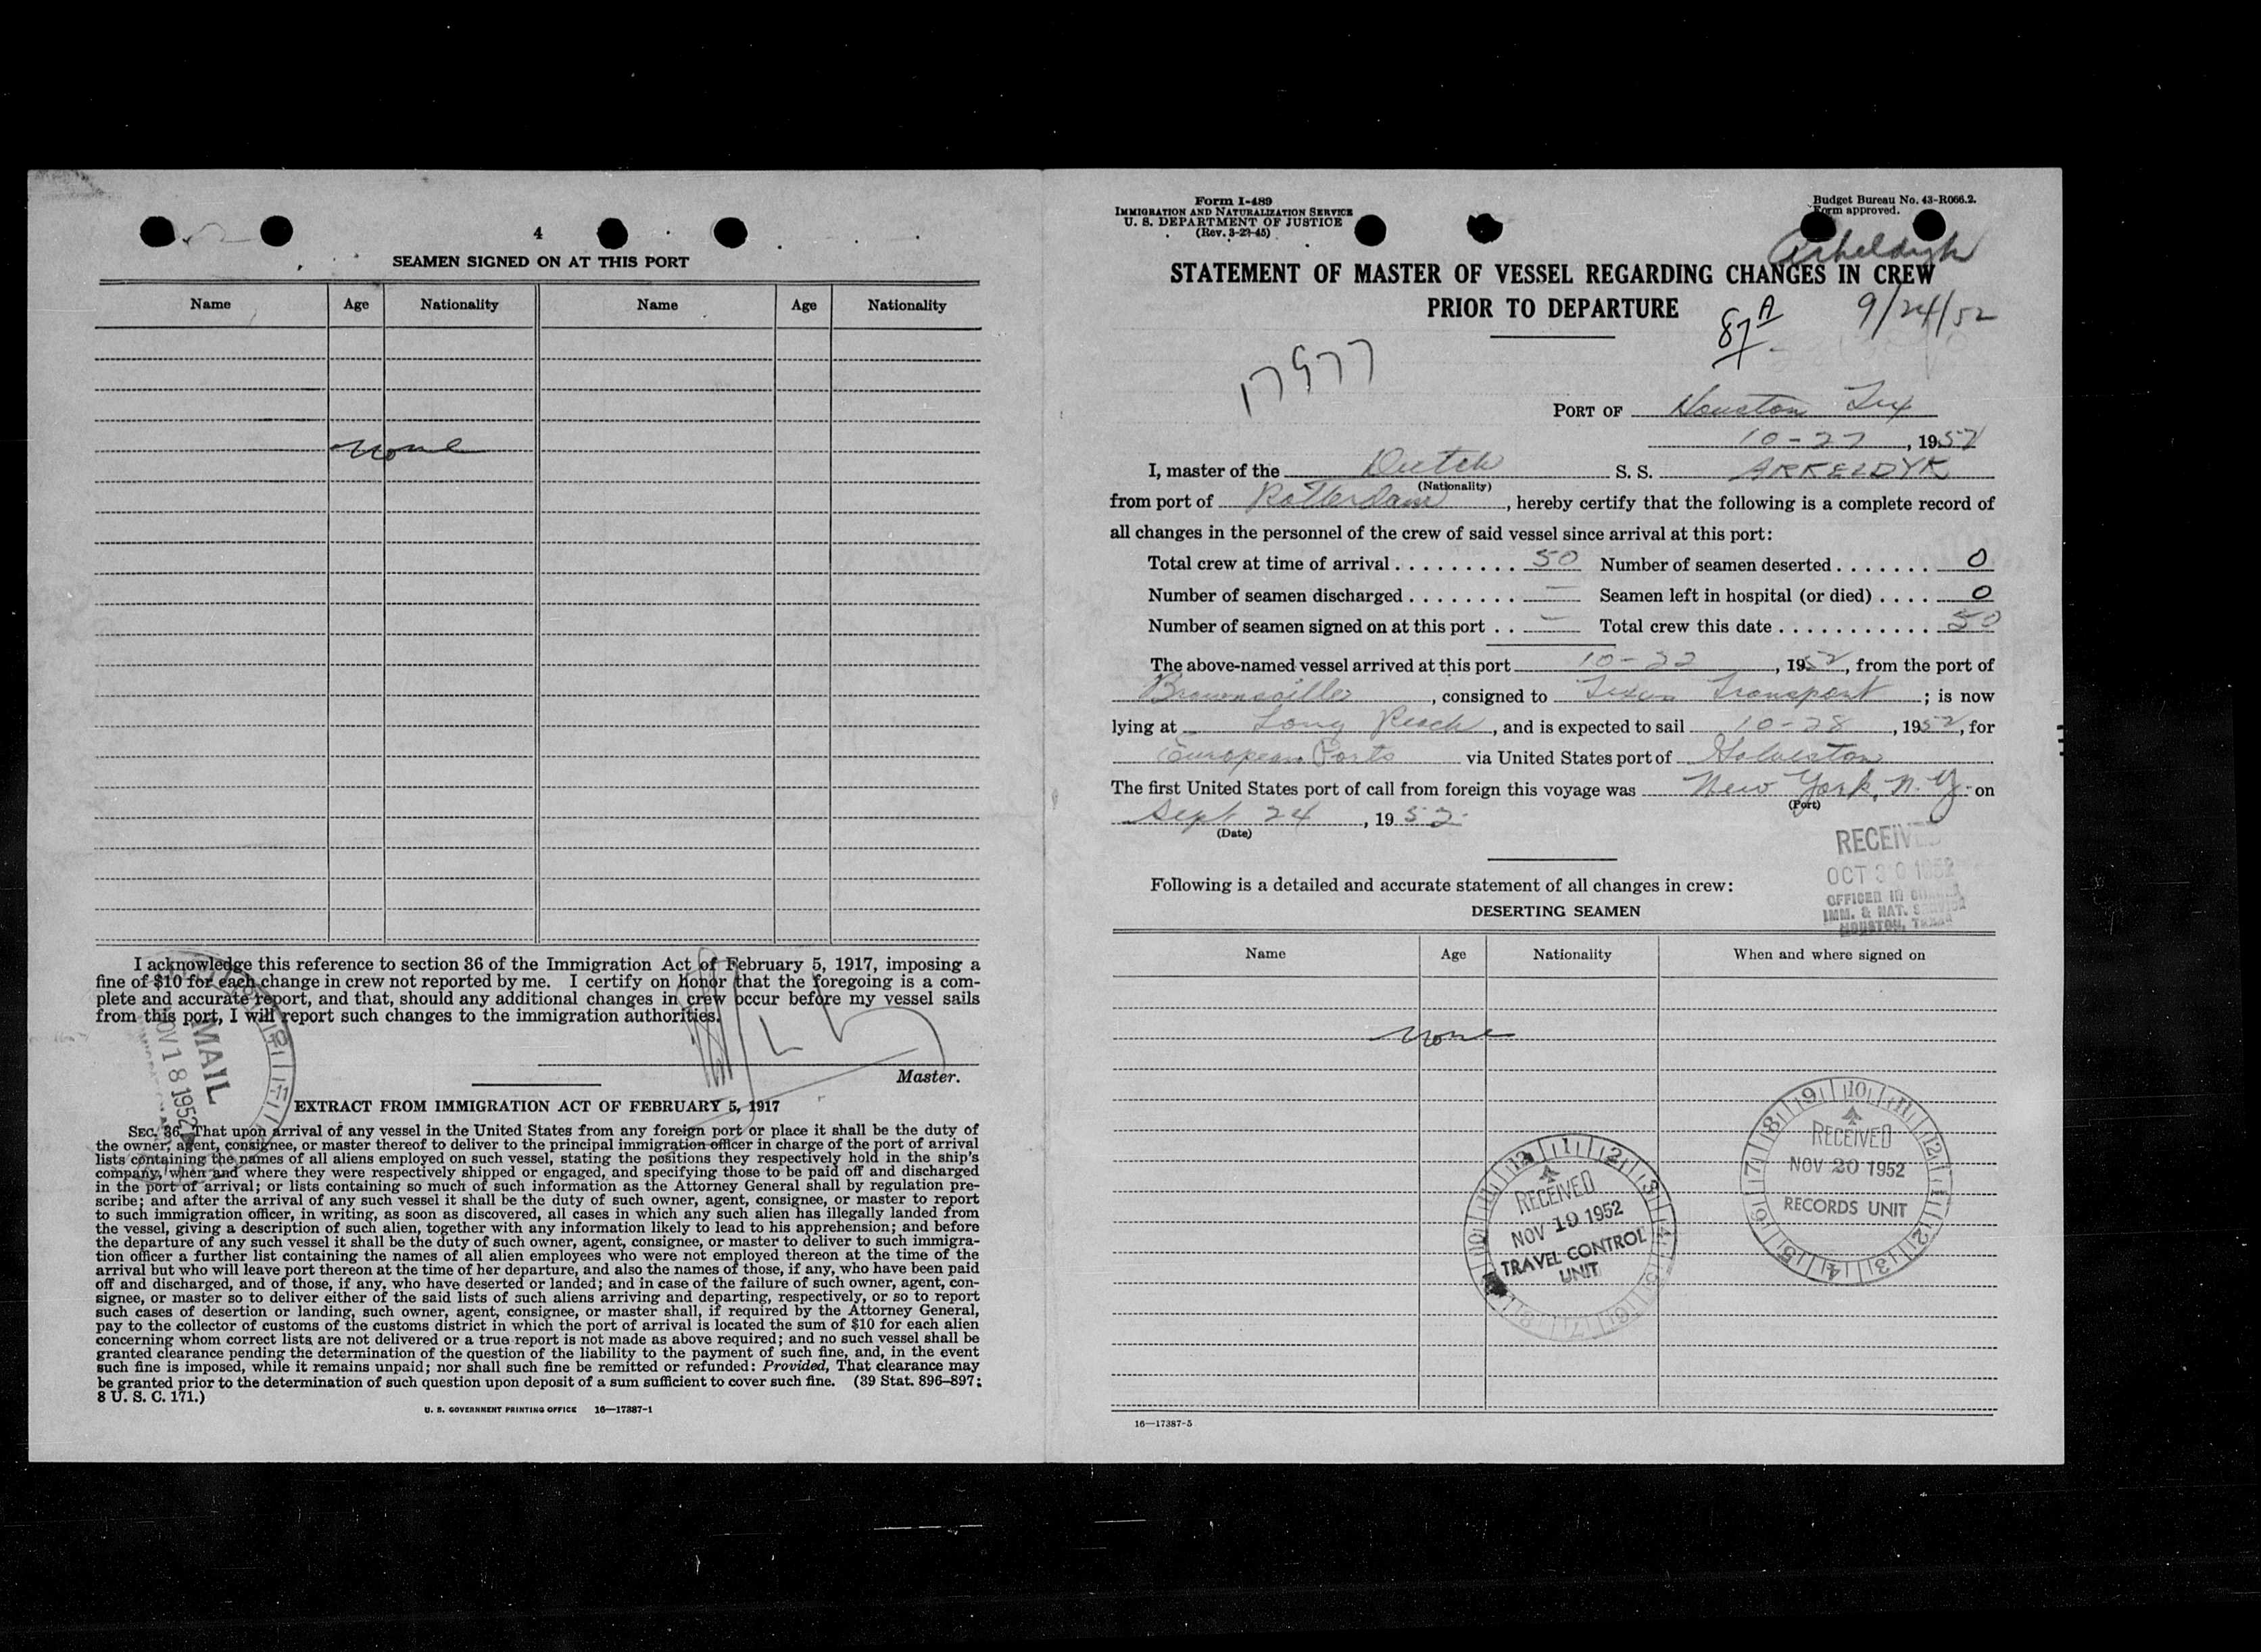 4
SEAMEN SIGNED ON AT THIS PORT
Name Age Nationality Name Age Nationality
None
I acknowledge this reference to section 36 of the Immigration Act of February 5, 1917, imposing a
fine of $10 for each change in crew not reported by me. I certify on honor that the foregoing is a com-
plete and accurate report, and that, should any additional changes in crew occur before my vessel sails
from this port, I will report such changes to the immigration authorities.
Master.
MAIL
NOV 18 1952
EXTRACT FROM IMMIGRATION ACT OF FEBRUARY 5, 1917
SEC. 36. That upon arrival of any vessel in the United States from any foreign port or place it shall be the duty of
the owner, agent, consignee, or master thereof to deliver to the principal immigration officer in charge of the port of arrival
lists containing the names of all aliens employed on such vessel, stating the positions they respectively hold in the ship's
company, when and where they were respectively shipped or engaged, and specifying those to be paid off and discharged
in the port of arrival; or lists containing so much of such information as the Attorney General shall by regulation pre-
scribe; and after the arrival of any such vessel it shall be the duty of such owner, agent, consignee, or master to report
to such immigration officer, in writing, as soon as discovered, all cases in which any such alien has illegally landed from
the vessel, giving a description of such alien, together with any information likely to lead to his apprehension; and before
the departure of any such vessel it shall be the duty of such owner, agent, consignee, or master to deliver to such immigra-
tion officer a further list containing the names of all alien employees who were not employed thereon at the time of the
arrival but who will leave port thereon at the time of her departure, and also the names of those, if any, who have been paid
off and discharged, and of those, if any, who have deserted or landed; and in case of the failure of such owner, agent, con-
signee, or master so to deliver either of the said lists of such aliens arriving and departing, respectively, or so to report
such cases of desertion or landing, such owner, agent, consignee, or master shall, if required by the Attorney General,
pay to the collector of customs of the customs district in which the port of arrival is located the sum of $10 for each alien
concerning whom correct lists are not delivered or a true report is not made as above required; and no such vessel shall be
granted clearance pending the determination of the question of the liability to the payment of such fine, and, in the event
such fine is imposed, while it remains unpaid; nor shall such fine be remitted or refunded: Provided, That clearance may
be granted prior to the determination of such question upon deposit of a sum sufficient to cover such fine. (39 Stat. 896–897;
8 U. S. C. 171.)
U. S. GOVERNMENT PRINTING OFFICE 16—17387-1
Form I-489
IMMIGRATION AND NATURALIZATION SERVICE
U. S. DEPARTMENT OF JUSTICE
(Rev. 3-27-45)
Budget Bureau No. 43-R066.2.
Form approved.
Arkeldyk
STATEMENT OF MASTER OF VESSEL REGARDING CHANGES IN CREW
PRIOR TO DEPARTURE
87 A 9/24/52
17977
PORT OF Houston Tex
10-27, 1952
I, master of the Dutch S. S. ARKELDYK
(Nationality)
from port of Rotterdam, hereby certify that the following is a complete record of
all changes in the personnel of the crew of said vessel since arrival at this port:
Total crew at time of arrival . . . . . . . . . 50 Number of seamen deserted . . . . . . . 0
Number of seamen discharged . . . . . . . . — Seamen left in hospital (or died) . . . . 0
Number of seamen signed on at this port . . — Total crew this date . . . . . . . . . . . . 50
The above-named vessel arrived at this port 10-22, 1952, from the port of
Brownsville, consigned to Texas Transport; is now
lying at Long Reach, and is expected to sail 10-28, 1952, for
European Ports via United States port of Galveston
The first United States port of call from foreign this voyage was New York, N.Y. on
(Port)
Sept 24, 1952
(Date)
RECEIVED
OCT 30 1952
OFFICER IN CHARGE
IMM. & NAT. SERVICE
HOUSTON, TEXAS
Following is a detailed and accurate statement of all changes in crew:
DESERTING SEAMEN
Name Age Nationality When and where signed on
None
RECEIVED
NOV 19 1952
TRAVEL CONTROL
UNIT
RECEIVED
NOV 20 1952
RECORDS UNIT
16—17387-5